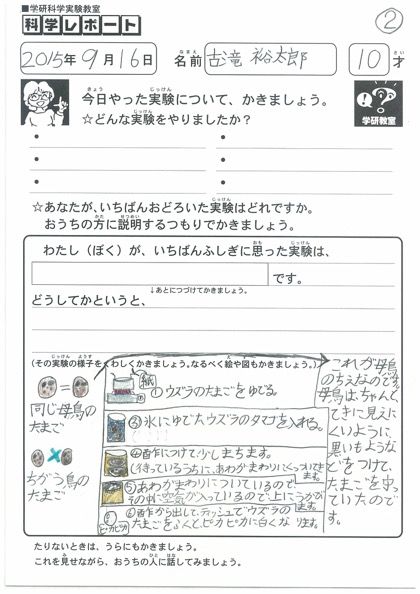 ■学研科学実験教室
科学レポート
②
2015年9月16日
名前 古滝 裕太郎
10才
今日やった実験について、かきましょう。
☆どんな実験をやりましたか？
学研教室
☆あなたが、いちばんおどろいた実験はどれですか。
おうちの方に説明するつもりでかきましょう。
わたし（ぼく）が、いちばんふしぎに思った実験は、
です。
↓あとにつづけてかきましょう。
どうしてかというと、
（その実験の様子をくわしくかきましょう。なるべく絵や図もかきましょう。）
同じ母鳥の
たまご
ちがう鳥の
たまご
紙
①ウズラのたまごをゆでる。
③氷にゆでたウズラのタマゴを入れる。
④酢につけて少しまちます。
（待っているうちに、あわがまわりにくっついてきます。）
⑤あわがまわりについているので、
その中に空気が入っているので上にうかびます。
ピカピカ
酢から出して、ティッシュでウズラの
たまごをふくと、ピカピカに白くなります。
これが母鳥
のちえなのです。
母鳥は、ちゃんと
てきに見えに
くいように、
黒いもような
どをつけて、
たまごを守っ
ていたので
す。
たりないときは、うらにもかきましょう。
これを見せながら、おうちの人に話してみましょう。